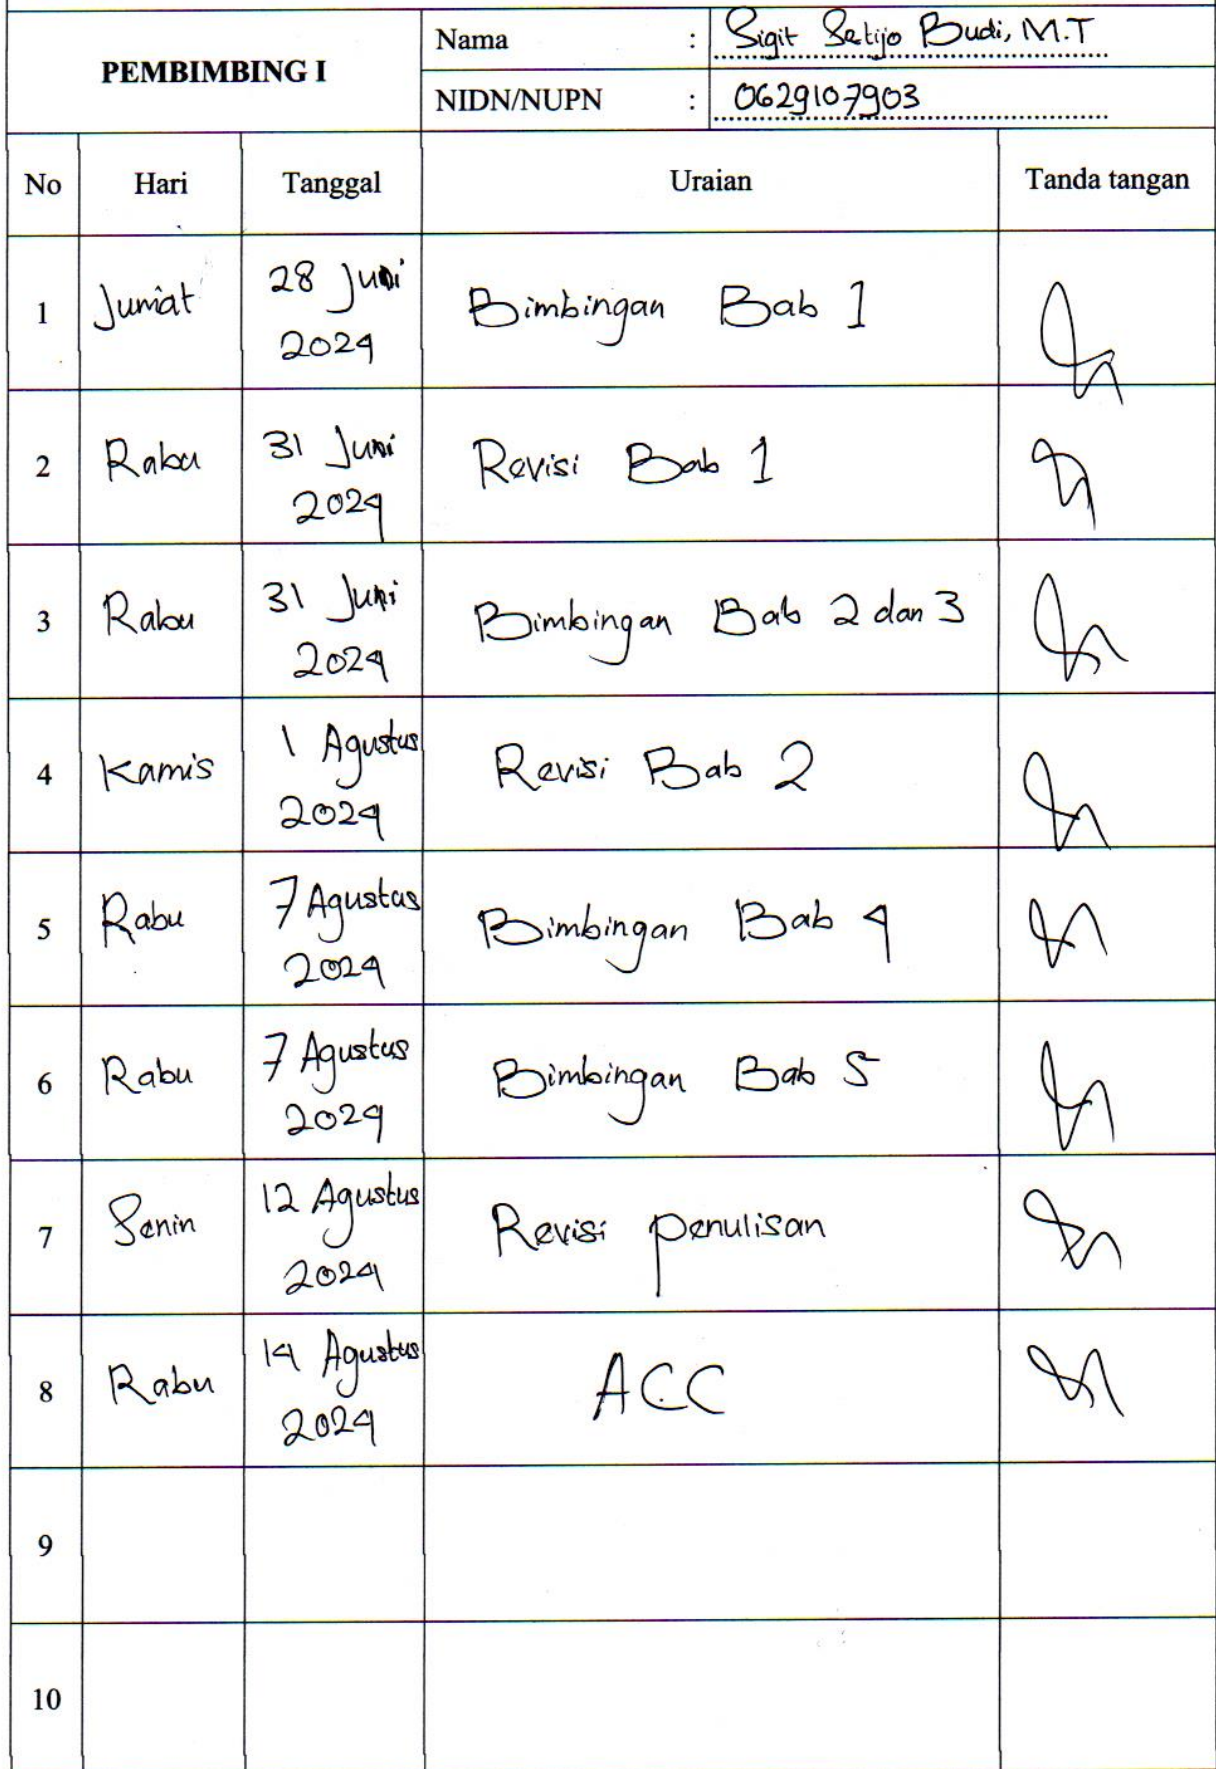 PEMBIMBING I
Nama : Sigit Setijo Budi, M.T
NIDN/NUPN : 0629107903
No Hari Tanggal Uraian Tanda tangan
1 Jumat 28 Juni 2024 Bimbingan Bab 1
2 Rabu 31 Juni 2024 Revisi Bab 1
3 Rabu 31 Juni 2024 Bimbingan Bab 2 dan 3
4 Kamis 1 Agustus 2024 Revisi Bab 2
5 Rabu 7 Agustus 2024 Bimbingan Bab 4
6 Rabu 7 Agustus 2024 Bimbingan Bab 5
7 Senin 12 Agustus 2024 Revisi penulisan
8 Rabu 14 Agustus 2024 ACC
9
10